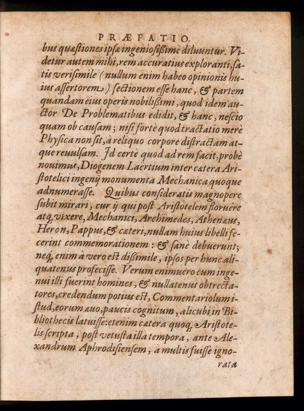 PRÆFATIO.
bus quæstiones ipsæ ingeniosissimè diluuntur. Vi-
detur autem mihi, rem accuratius exploranti, sa-
tis verisimile (nullum enim habeo opinionis hu-
ius assertorem) sectionem esse hanc, & partem
quandam eius operis nobilissimi, quod idem au-
ctor De Problematibus edidit, & hanc, nescio
quam ob causam; nisi fortè quod tractatio merè
Physica non sit, à reliquo corpore distractam at-
que reuulsam. Id certè quod ad rem facit, probè
nouimus, Diogenem Laertium inter cætera Ari-
stotelici ingenij monumenta Mechanica quoque
adnumerasse. Quibus consideratis magnopere
subit mirari, cur ij qui post Aristotelem floruere
atq; vixere, Mechanici, Archimedes, Athenæus,
Heron, Pappus, & cæteri, nullam huius libelli fe-
cerint commemorationem: & sanè debuerunt;
neq; enim à vero est dissimile, ipsos per hunc ali-
quatenus profecisse. Verum enimuero cum inge-
nui illi fuerint homines, & nullatenus obtrecta-
tores, credendum potius est, Commentariolum i-
stud, eorum æuo, paucis cognitum, alicubi in Bi-
bliothecis latuisse: etenim cætera quoq; Aristote-
lis scripta, post vetusta illa tempora, ante Ale-
xandrum Aphrodisiensem, à multis fuisse igno-
rata